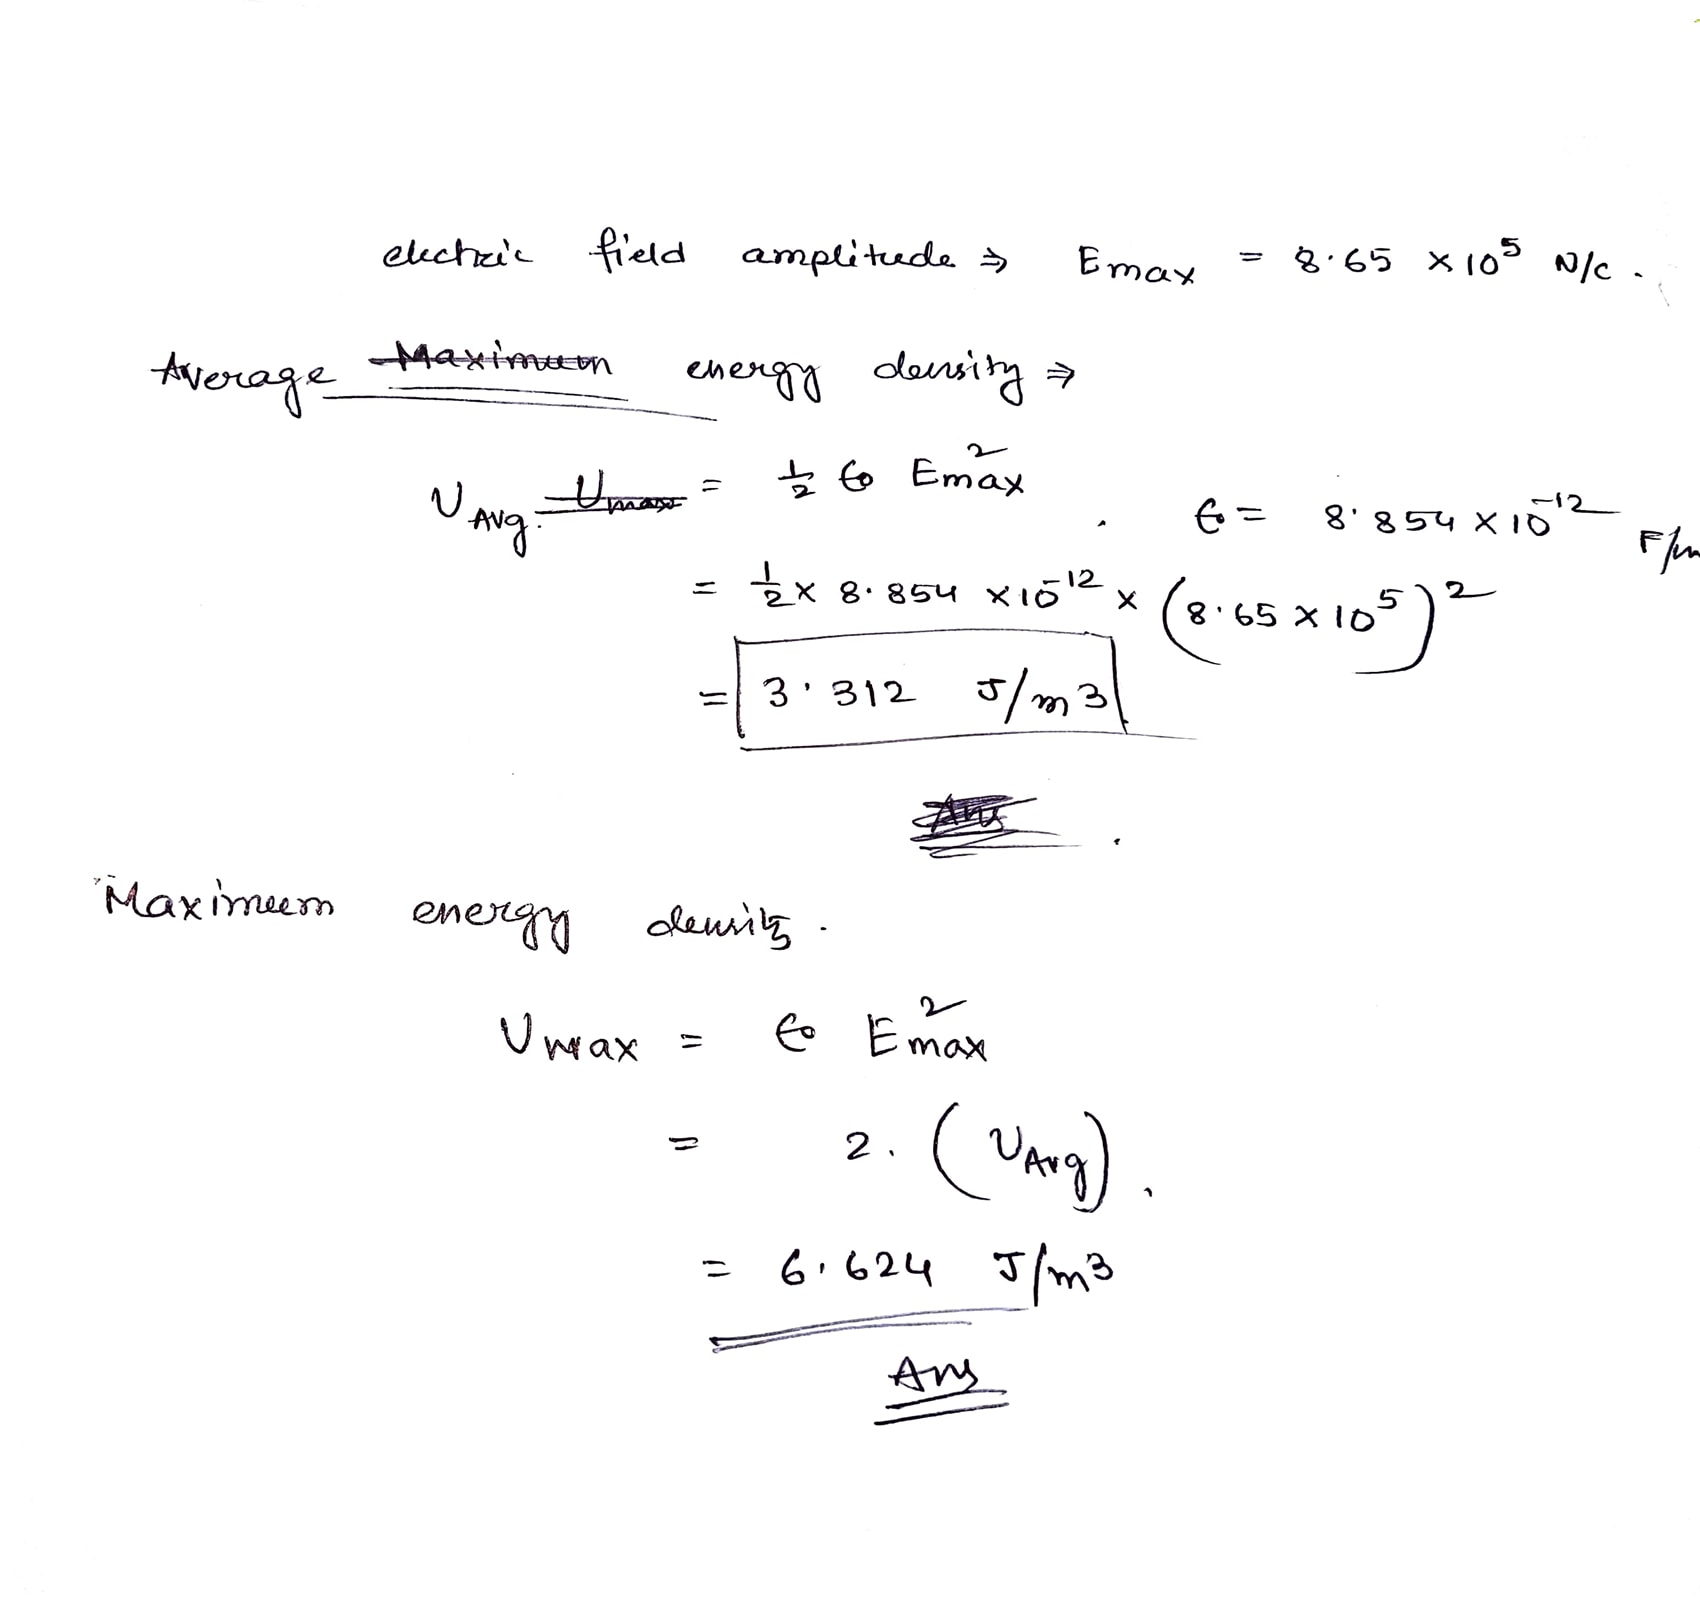 electric field amplitude ⇒ Emax = 8.65 × 10⁵ N/C.
Average Maximum energy density ⇒
U Avg. Umax = ½ ϵ₀ E²max . ϵ₀ = 8.854 × 10⁻¹² F/m
= ½ × 8.854 × 10⁻¹² × (8.65 × 10⁵)²
= 3.312 J/m3
Ans
Maximum energy density.
Umax = ϵ₀ E²max
= 2. (UAvg).
= 6.624 J/m3
Ans